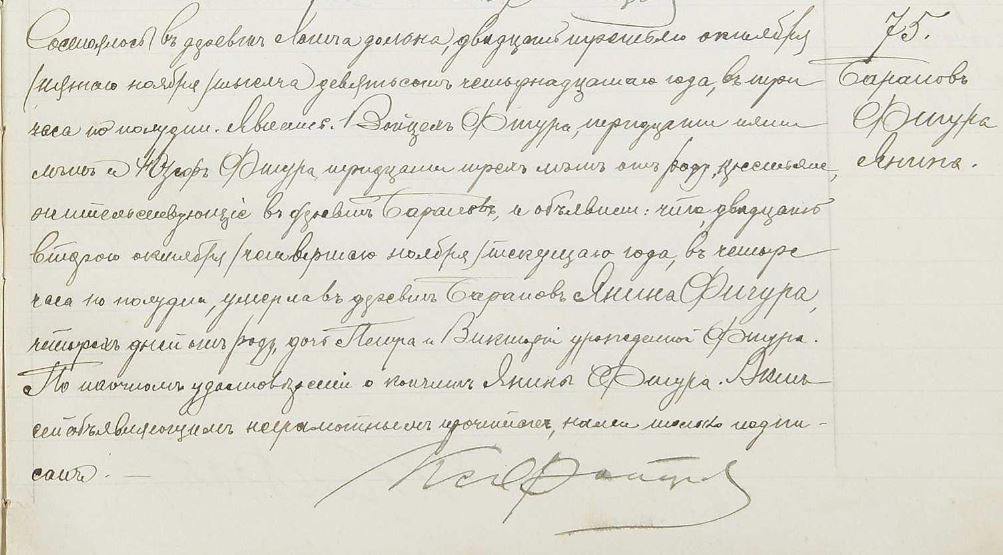 Состоялось въ деревнѣ двадцать третьяго октября
/пятаго ноября/ тысяча девятьсотъ четырнадцатаго года, въ три
часа по полудни. Явились: Войцехъ Фигура, тридцати пяти
лѣтъ и Юзефъ Фигура тридцати трехъ лѣтъ отъ роду, крестьяне,
жительствующіе въ деревнѣ Барановъ, и объявили: что, двадцать
втораго октября /четвертаго ноября/ текущаго года, въ четыре
часа по полудни, умерла въ деревнѣ Барановъ Янина Фигура,
четырехъ дней отъ роду, дочь Петра и Викторіи урожденной Фигура.
По наочномъ удостовѣреніи о кончинѣ Янины Фигура. Актъ
сей объявляющимъ неграмотнымъ прочитанъ, нами только подпи-
санъ. —
75.
Барановъ
Фигура
Янина.